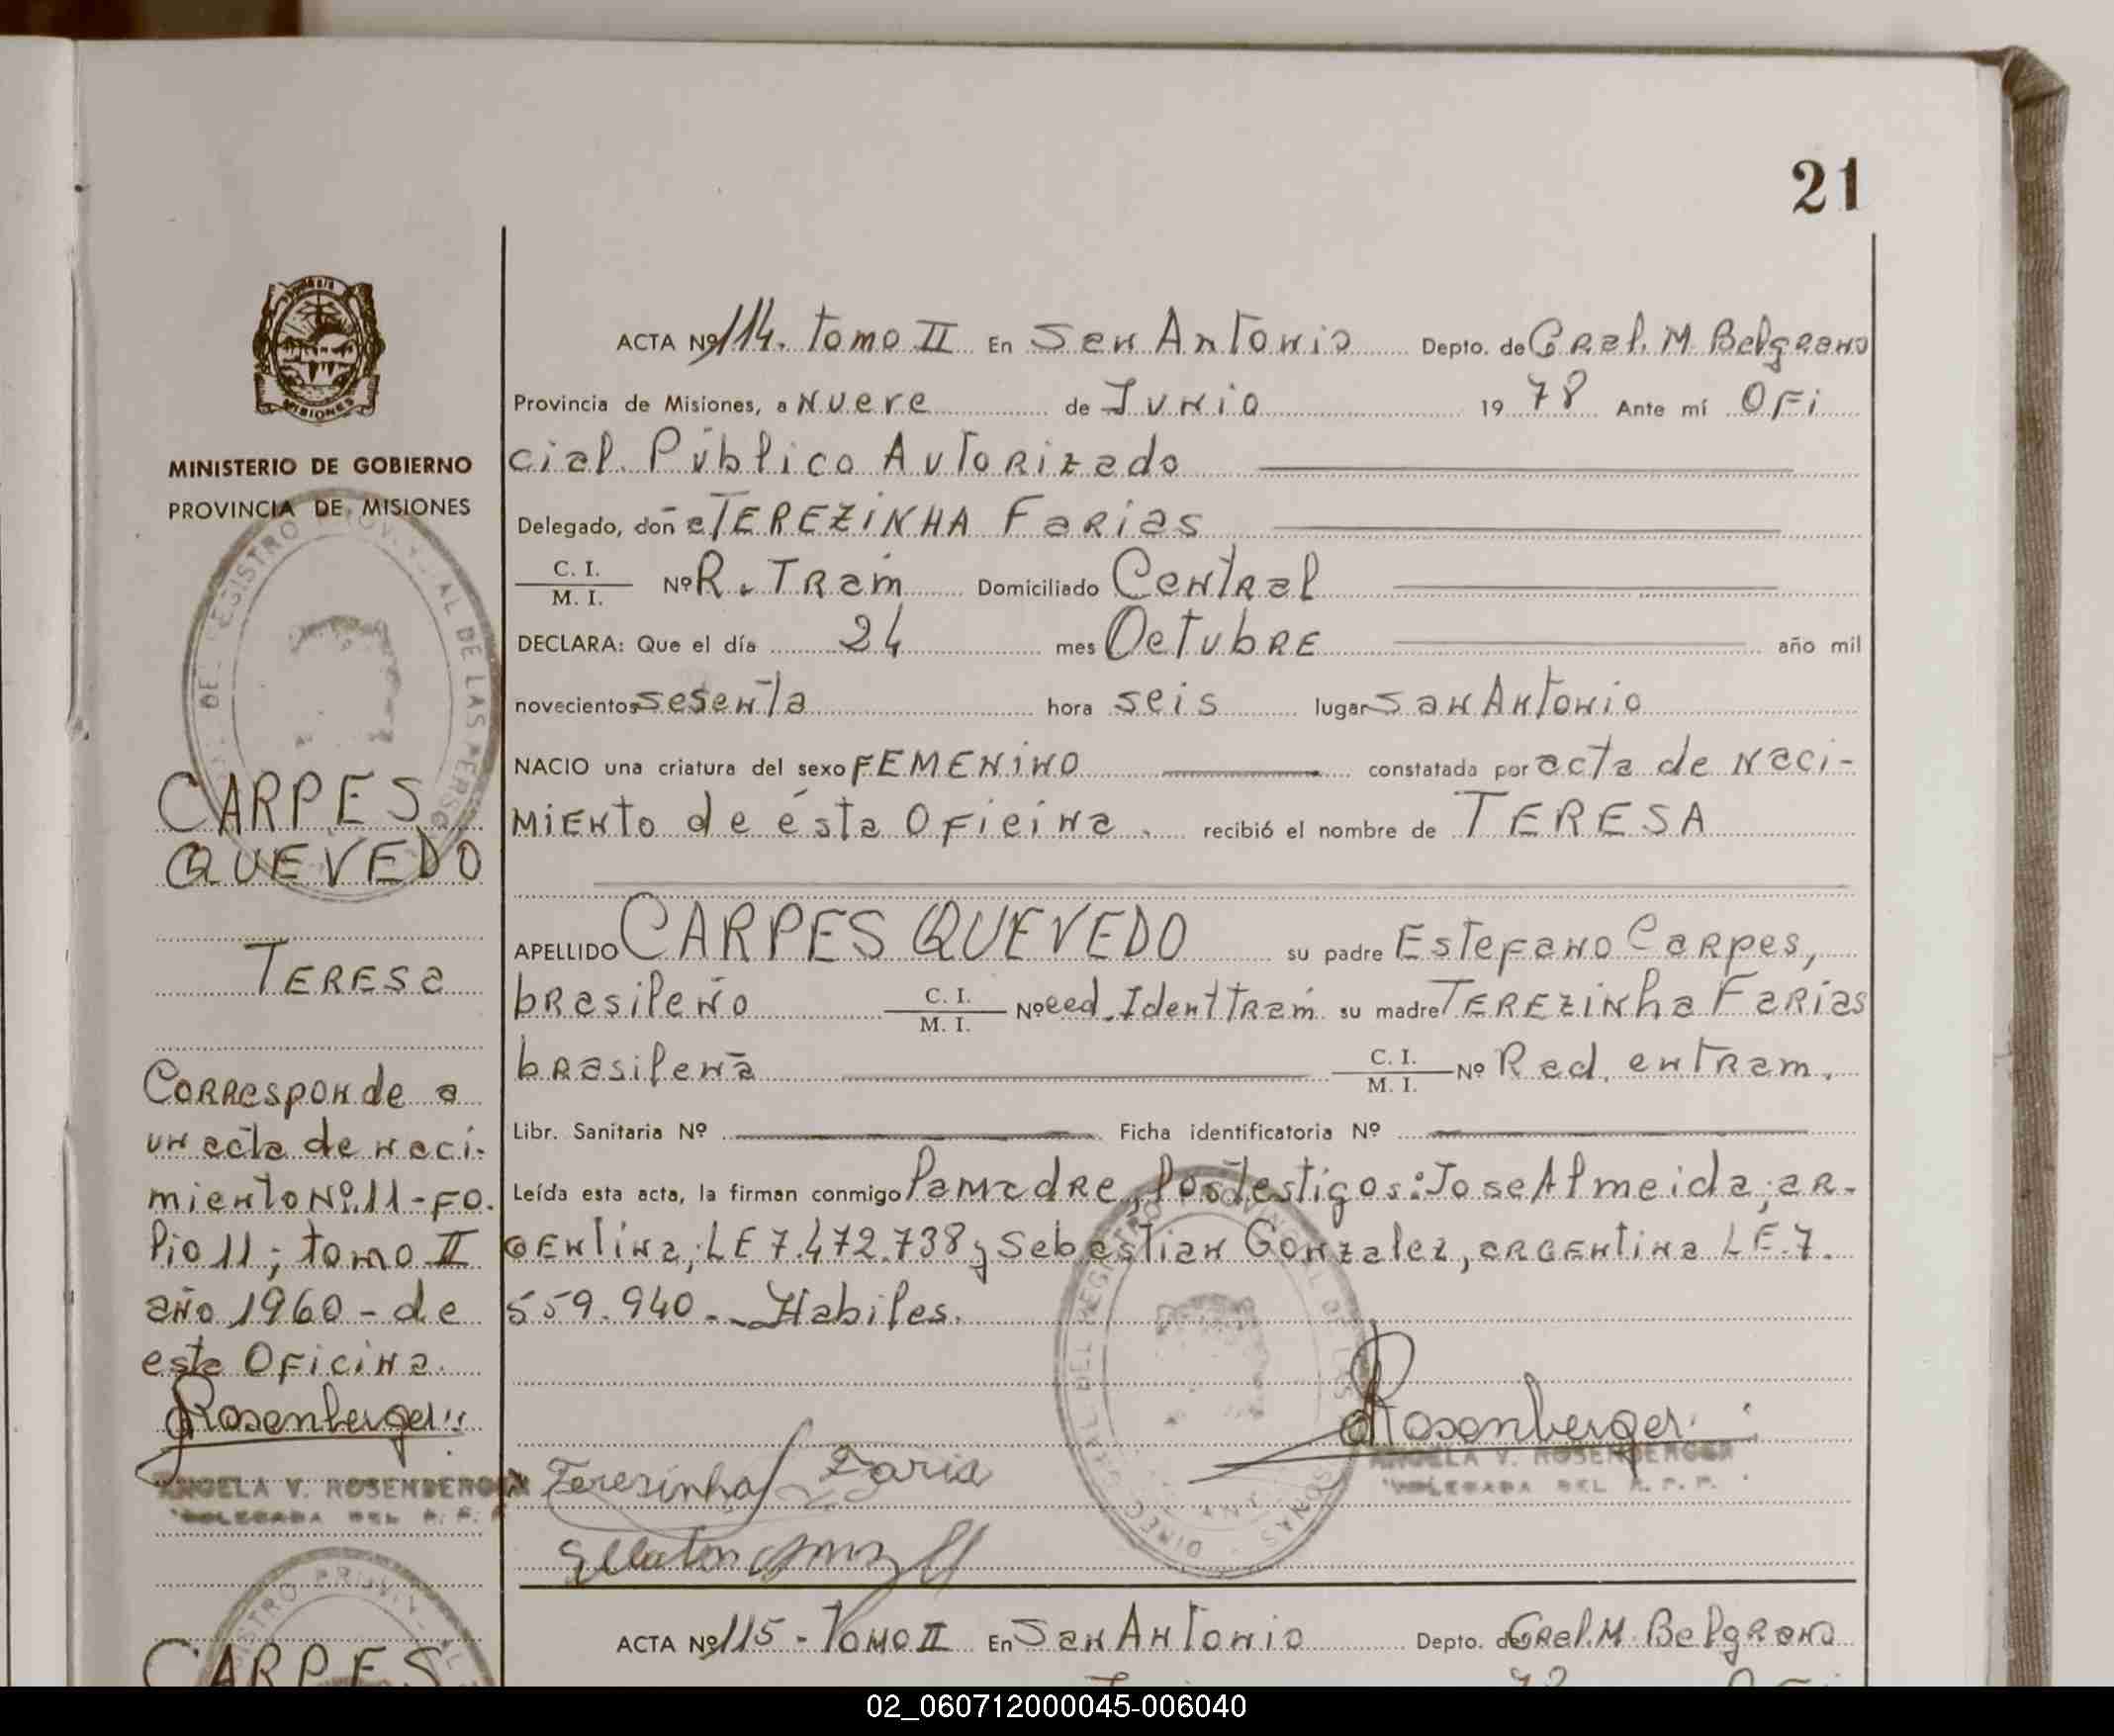 21
ACTA Nº 114. tomo II En San Antonio Depto. de Gral. M. Belgrano
Provincia de Misiones, a Nueve de Junio 1978 Ante mí Ofi
cial Público Autorizado
Delegado, doña TEREZINHA Farias
C. I. / M. I. Nº R. Tram Domiciliado Central
DECLARA: Que el día 24 mes Octubre año mil
novecientos sesenta hora seis lugar San Antonio
NACIO una criatura del sexo FEMENINO constatada por acta de naci-
miento de ésta Oficina. recibió el nombre de TERESA
APELLIDO CARPES QUEVEDO su padre Estefano Carpes,
brasileño C. I. / M. I. Nº ced. Ident Tram su madre TEREZINha Farias
brasileña C. I. / M. I. Nº Rad. en tram.
Libr. Sanitaria Nº Ficha identificatoria Nº
Leída esta acta, la firman conmigo la madre, los testigos: Jose Almeida, ar-
gentina, LE 7.472.738 y Sebastian Gonzalez, argentina LE. 7.
559.940.- Habiles.
Rosenberger
Terezinha Faria
ANGELA V. ROSENBERGER
DELEGADA DEL R. P. P.
MINISTERIO DE GOBIERNO
PROVINCIA DE MISIONES
CARPES
QUEVEDO
TERESa
Corresponde a
un acta de naci-
miento Nº 11 - fo.
lio 11; tomo II
año 1960 - de
esta Oficina.
Rosenberger
ANGELA V. ROSENBERGER
DELEGADA DEL R. P.
ACTA Nº 115 - Tomo II En San Antonio Depto. de Gral. M. Belgrano
CARPES
02_060712000045-006040